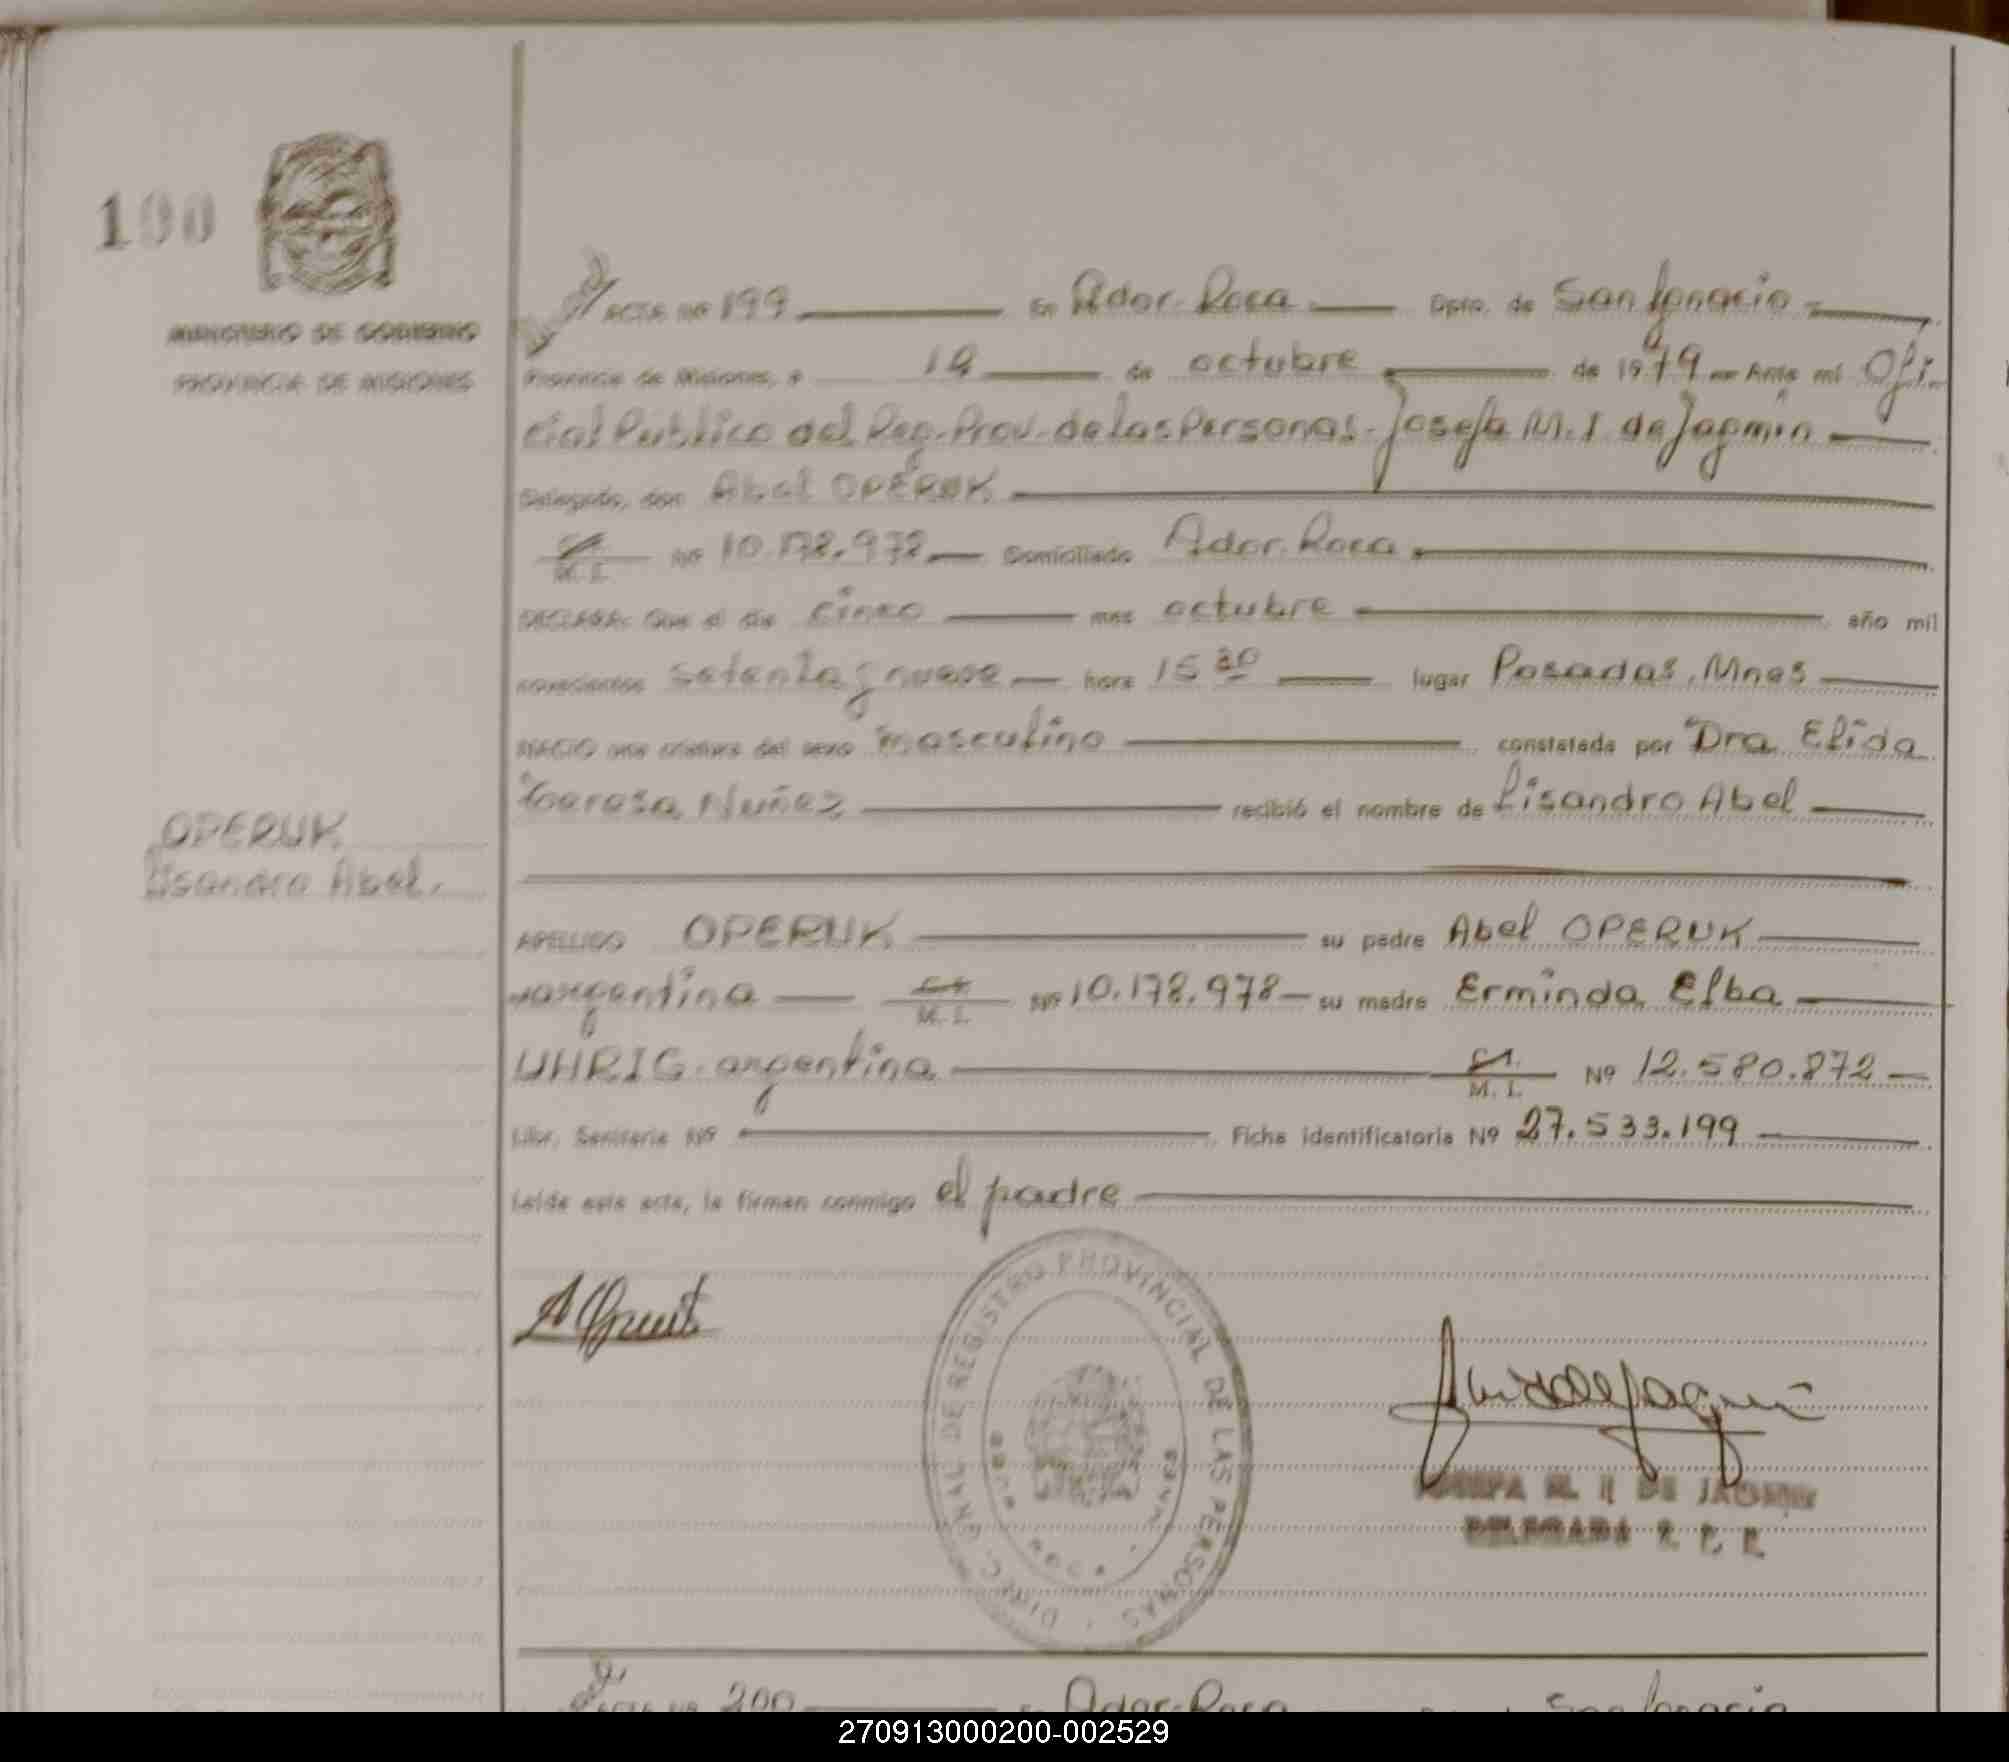 100
MINISTERIO DE GOBIERNO
PROVINCIA DE MISIONES
ACTA Nº 199 En Ador. Roca Dpto. de San Ignacio
Provincia de Misiones, a de octubre de 1979 Ante mí Ofi-
cial Público del Reg. Prov. de las Personas. Josefa M. I. de Jagmin
Delegado, don Abel OPERUK
C.I.
M. I. Nº 10.178.978 Domiciliado Ador. Roca
DECLARA: Que el día cinco mes octubre año mil
novecientos setenta y nueve hora 15 30 lugar Posadas, Mnes
NACIO una criatura del sexo masculino constatada por Dra Elida
Teresa Nuñez recibió el nombre de Lisandro Abel
OPERUK
Lisandro Abel.
APELLIDO OPERUK su padre Abel OPERUK
argentina C.I.
M. I. Nº 10.178.978 su madre Erminda Elba
UHRIG. argentina C.I.
M. I. Nº 12.580.872
Libr. Sanitaria Nº Ficha identificatoria Nº 27.533.199
Leída esta acta, la firman conmigo el padre
DIREC. GRAL. DE REGISTRO PROVINCIAL DE LAS PERSONAS
ROCA
JOSEFA M. I. DE JAGMIN
DELEGADA R. P. P.
ACTA Nº 200 Ador. Roca San Ignacio
270913000200-002529